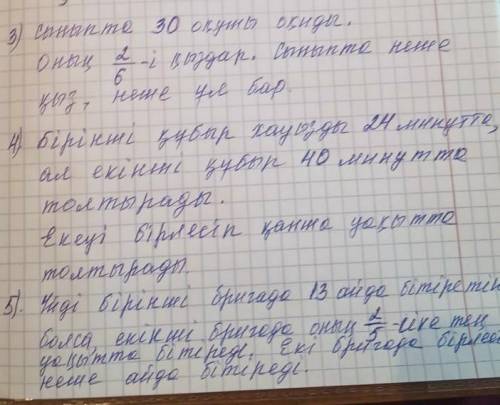 3) Сыныпта 30 оқушы оқиды.
Оның 2/6 -і қыздар. Сыныпта неше
қыз, неше ұл бар.
4) Бірінші құбыр хауызды 24 минутта,
ал екінші құбыр 40 минутта
толтырады.
Екеуі бірлесіп қанша уақытта
толтырады.
5). Үйді бірінші бригада 13 айда бітіретін
болса, екінші бригада оның тең
уақытта бітіреді. Екі бригада бірлесе
неше айда бітіреді.